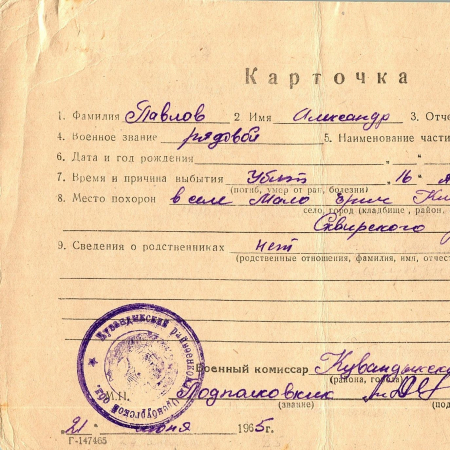 Карточка
1. Фамилия Павлов 2 Имя Александр 3. Отче
4. Военное звание рядовой 5. Наименование части
6. Дата и год рождения „ “
7. Время и причина выбытия Убит „16“
(погиб, умер от ран, болезни)
8. Место похорон в селе Мало
село, город (кладбище, район,
Сквирского
9. Сведения о родственниках нет
(родственные отношения, фамилия, имя, отчест
Кувандыкский райвоенкомат Оренбургской обл.
Военный комиссар Кувандыкск
(района, города)
М.П. Подполковник
(звание) (под
„21“ июня 1965г.
Г-147465